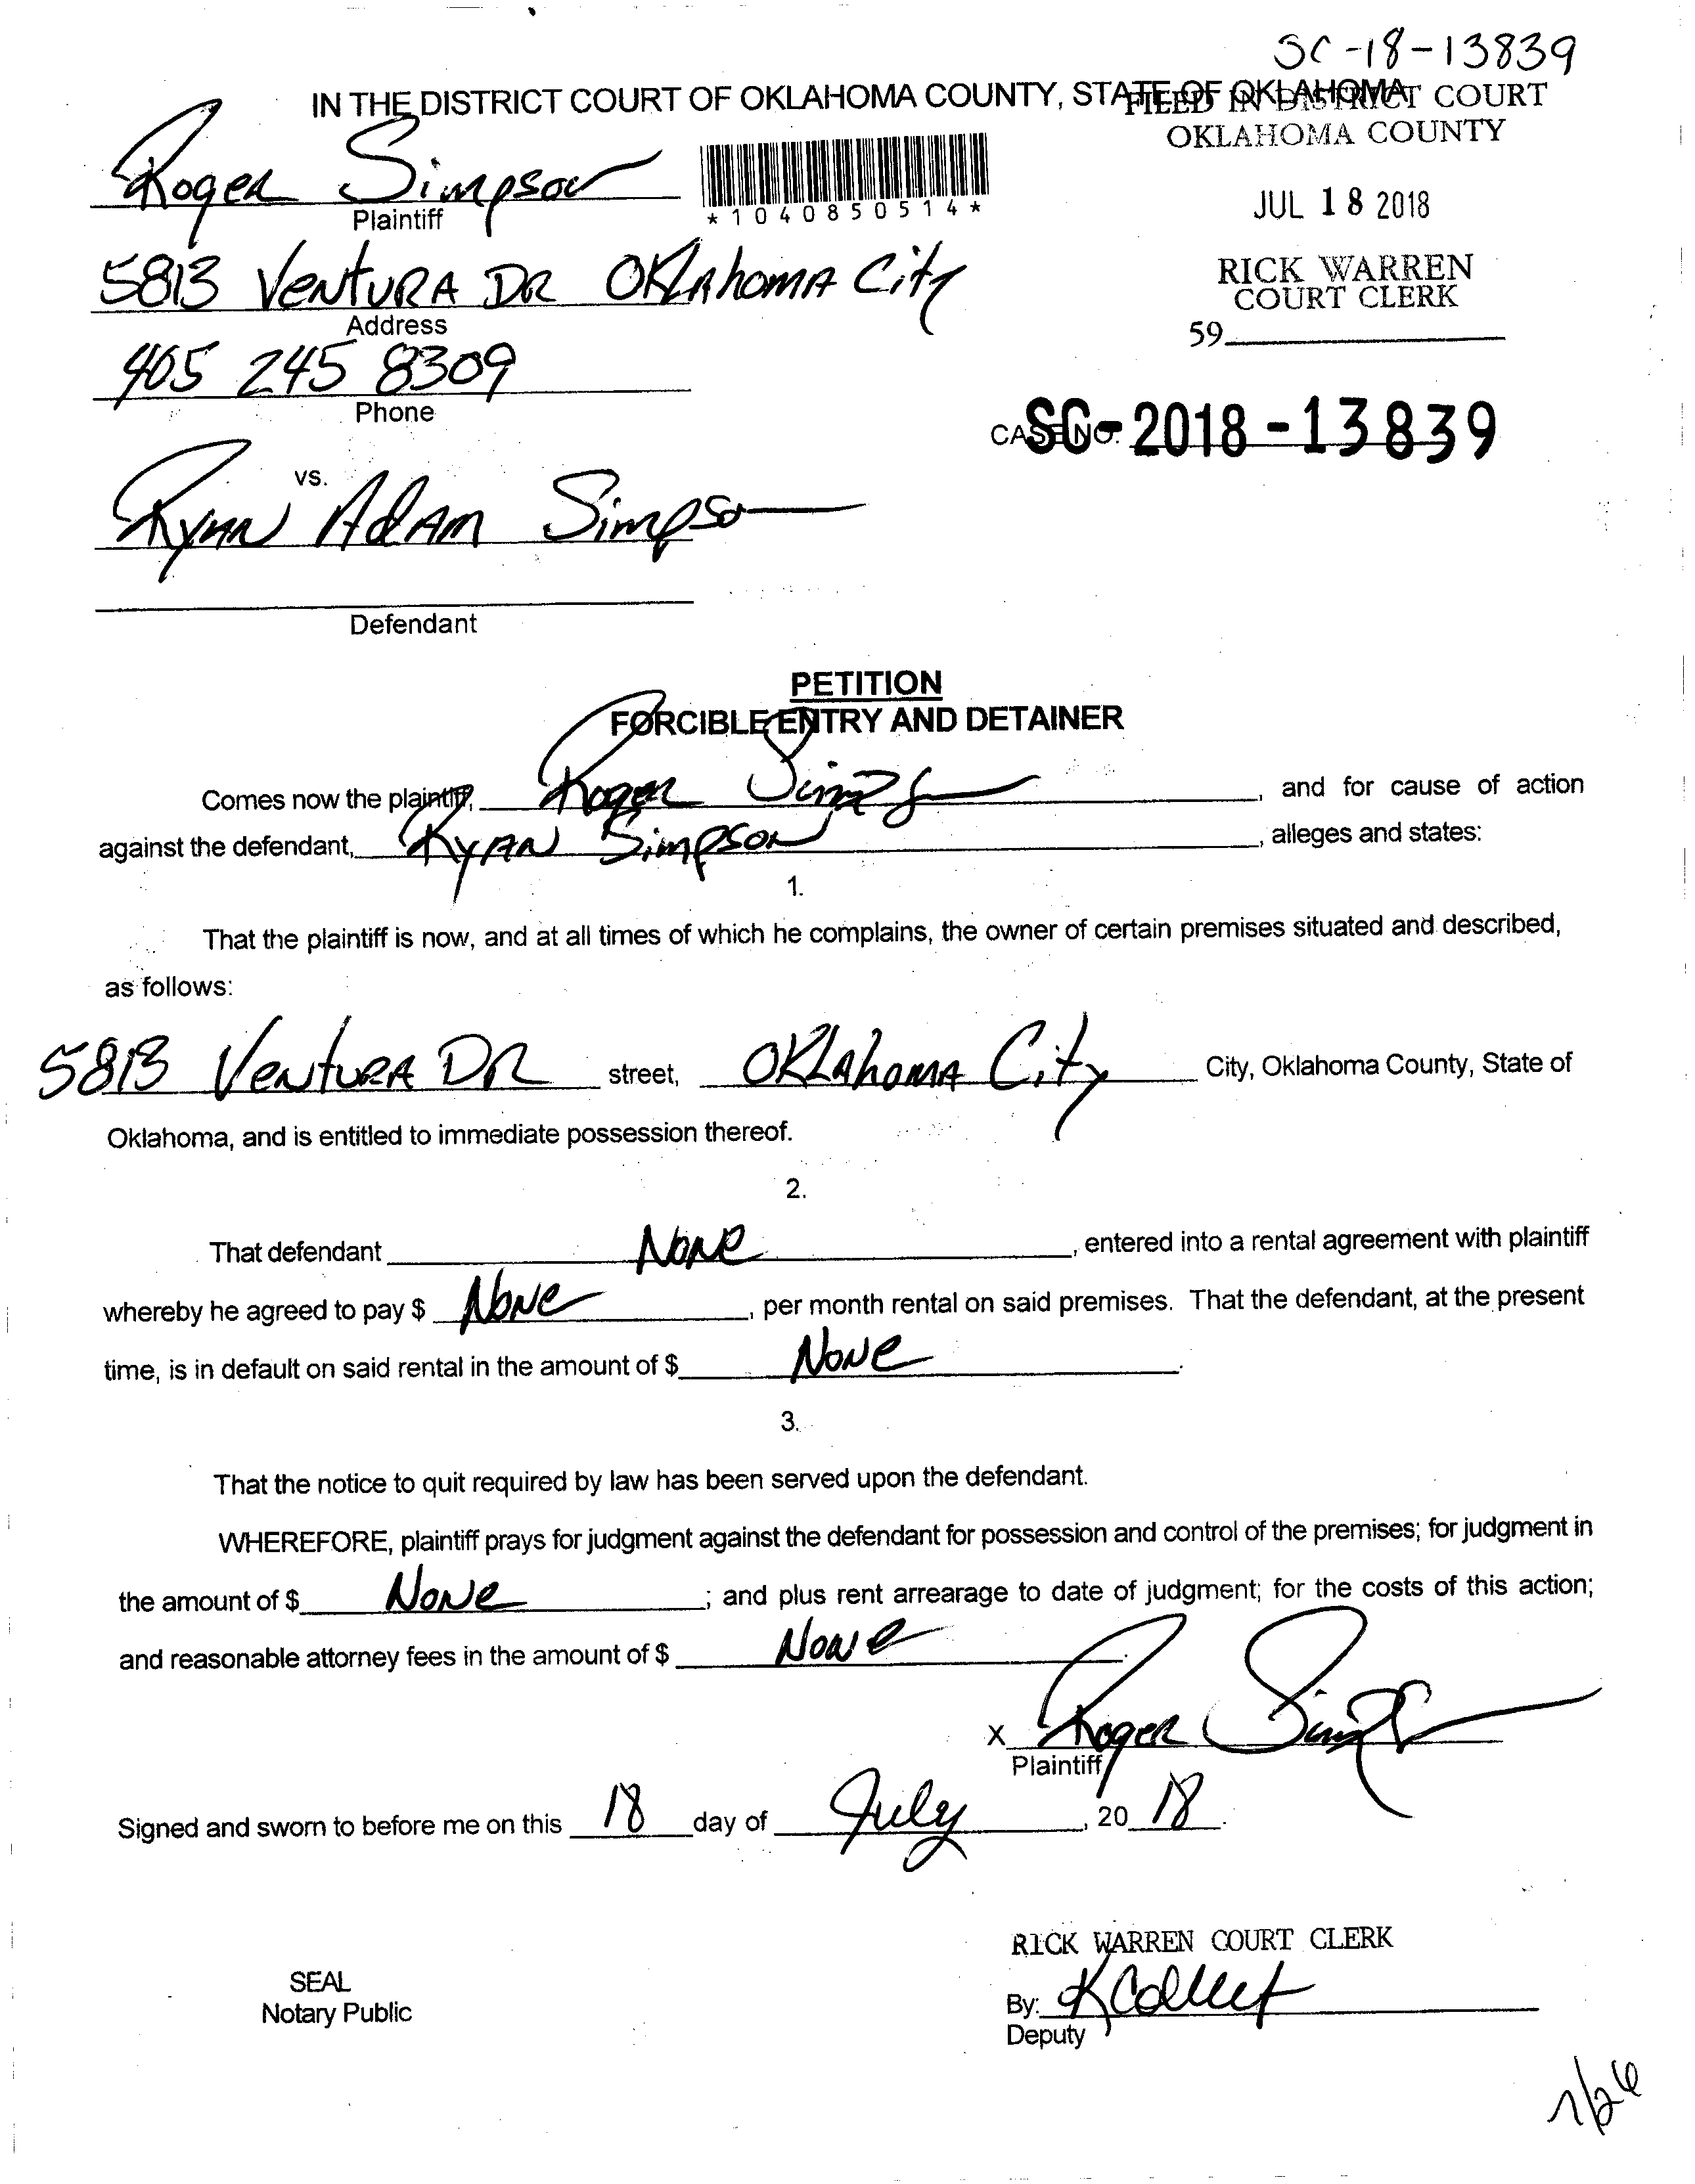 SC-18-13839
IN THE DISTRICT COURT OF OKLAHOMA COUNTY, STATE OF OKLAHOMA
FILED IN DISTRICT COURT
OKLAHOMA COUNTY
Roger Simpson
Plaintiff
*1040850514*
JUL 18 2018
5813 Ventura DR Oklahoma City
Address
RICK WARREN
COURT CLERK
59
405 245 8309
Phone
CASE NO. SC-2018-13839
vs.
Ryan Adam Simpson
Defendant
PETITION
FORCIBLE ENTRY AND DETAINER
Comes now the plaintiff, Roger Simpson, and for cause of action
against the defendant, Ryan Simpson, alleges and states:
1.
That the plaintiff is now, and at all times of which he complains, the owner of certain premises situated and described,
as follows:
5813 Ventura DR street, Oklahoma City City, Oklahoma County, State of
Oklahoma, and is entitled to immediate possession thereof.
2.
That defendant None, entered into a rental agreement with plaintiff
whereby he agreed to pay $ None, per month rental on said premises. That the defendant, at the present
time, is in default on said rental in the amount of $ None.
3.
That the notice to quit required by law has been served upon the defendant.
WHEREFORE, plaintiff prays for judgment against the defendant for possession and control of the premises; for judgment in
the amount of $ None; and plus rent arrearage to date of judgment; for the costs of this action;
and reasonable attorney fees in the amount of $ None.
X Roger Simpson
Plaintiff
Signed and sworn to before me on this 18 day of July, 2018.
RICK WARREN COURT CLERK
SEAL
Notary Public
By:
Deputy
7/26